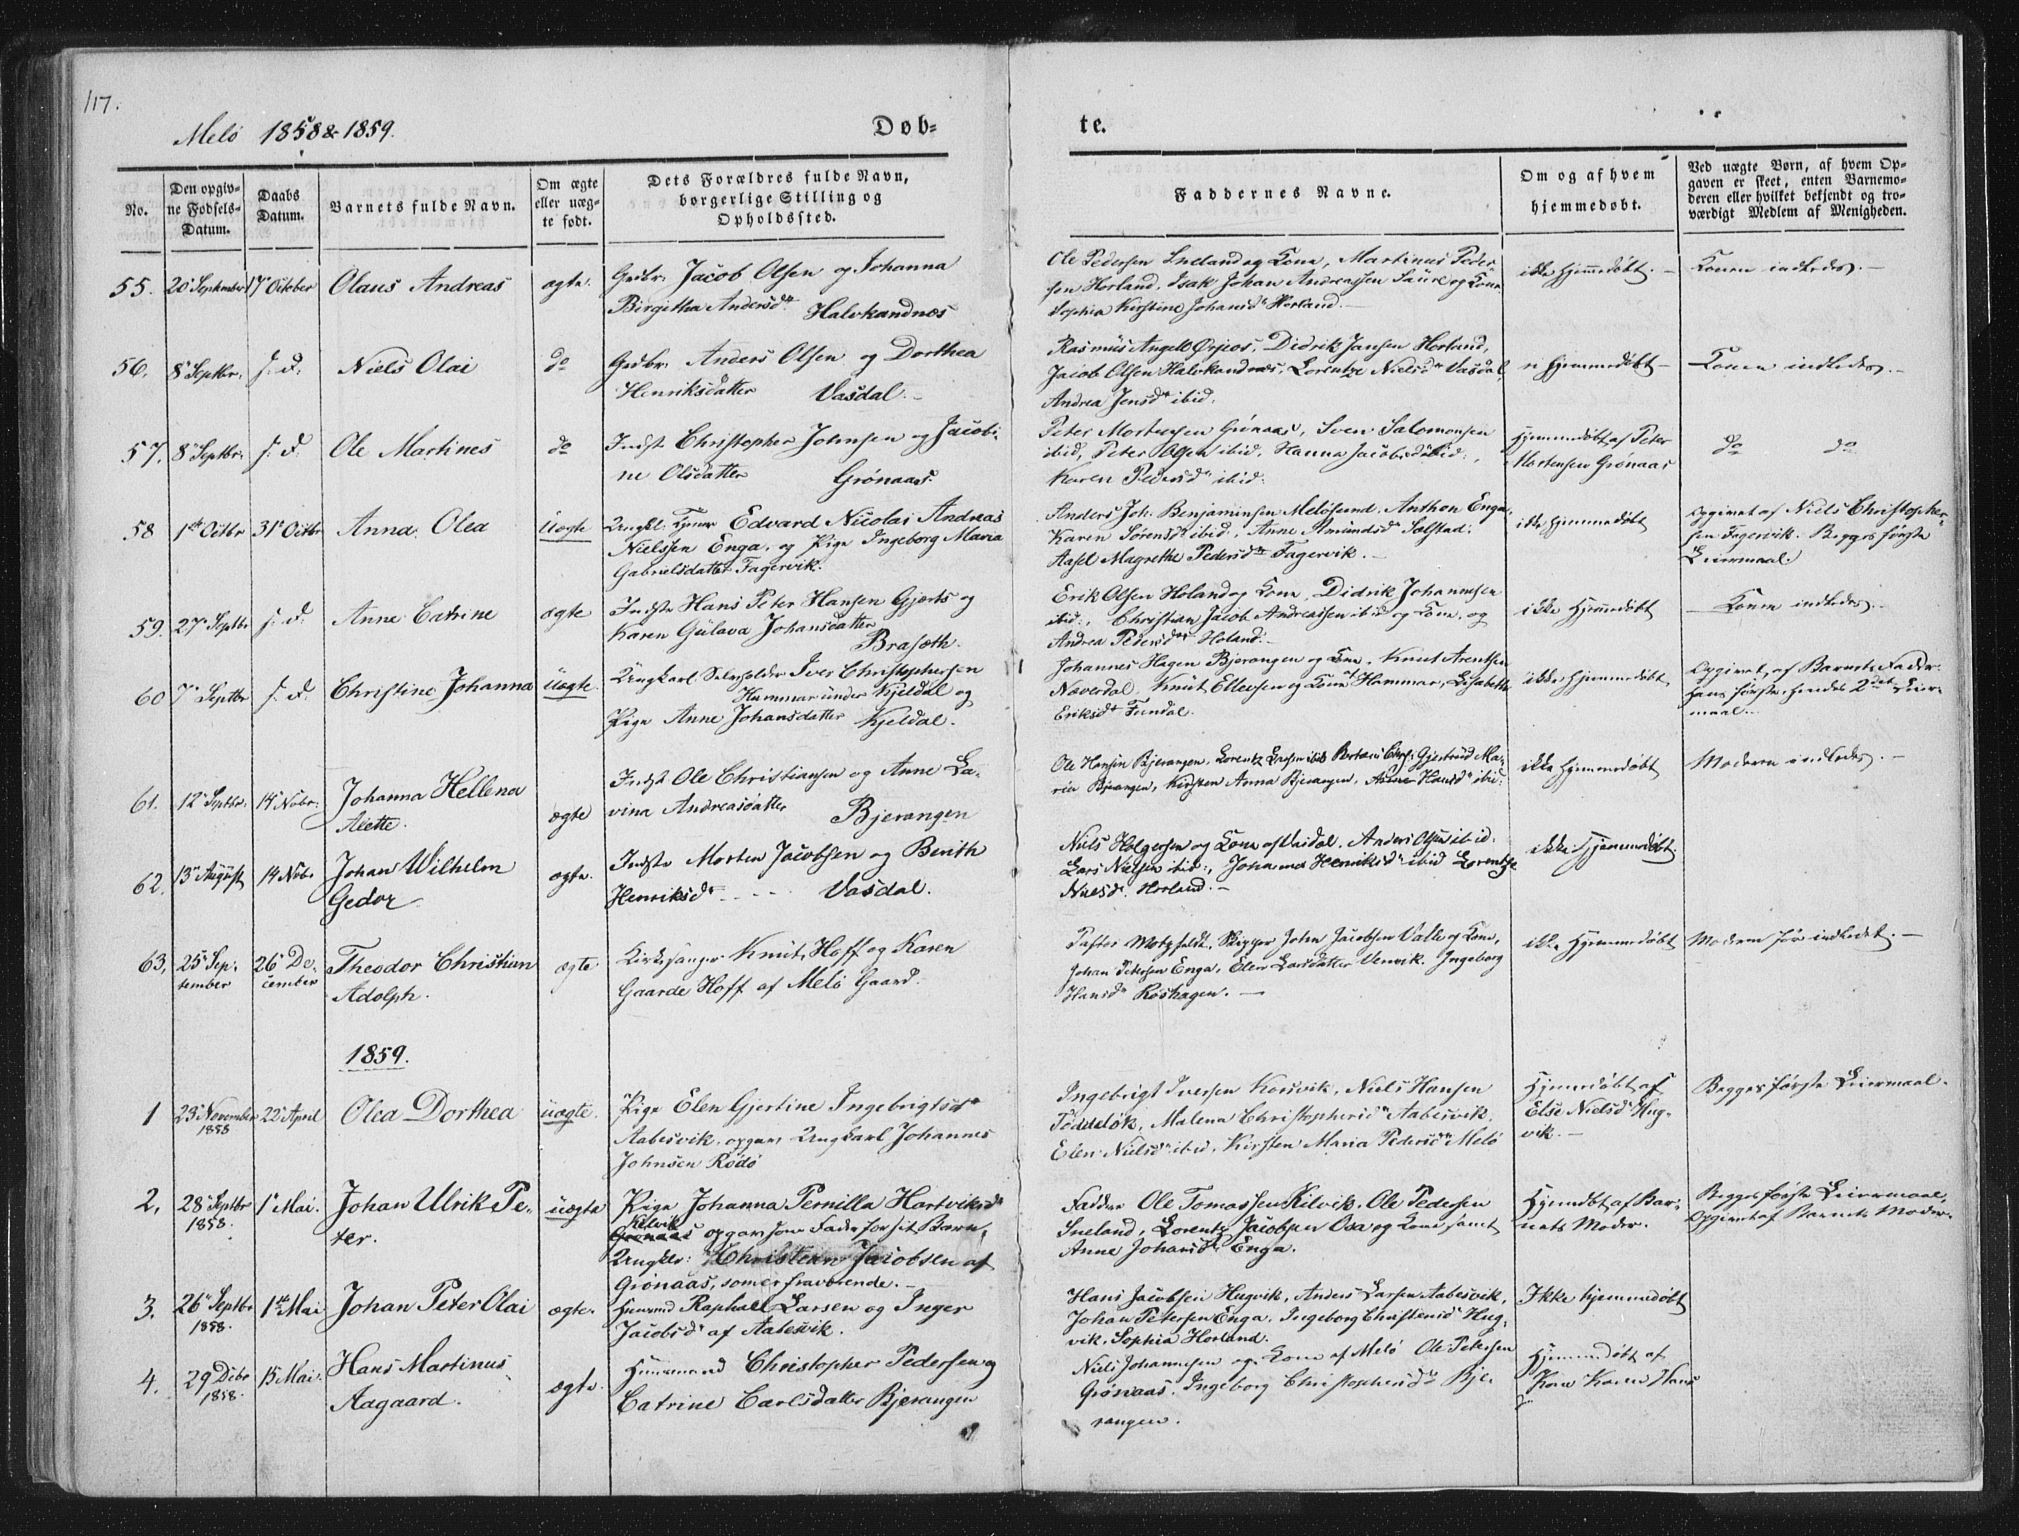 117.
Melö 1858 & 1859.
Døb-
te.
No.
Den opgiv-
ne Fødsels-
Datum.
Daabs
Datum.
Barnets fulde Navn.
Om ægte
eller uæg-
te født.
Dets Forældres fulde Navn,
borgerlige Stilling og
Opholdssted.
Faddernes Navne.
Om og af hvem
hjemmedøbt.
Ved uægte Børn, af hvem Op-
gaven er skeet, enten Barnemo-
deren eller hvilket bekjendt og tro-
værdigt Medlem af Menigheden.
55. 20 September 17 October Olaus Andreas ægte.
Grdbr. Jacob Olsen og Johanna
Birgitha Andersdr Halvkandnæs
Ole Pedersen Sneland og Kone, Martinus Peder-
sen Horland, Isak Johan Andreassen Saure og Kone
Sophia Kirstine Johansdr Horland.
ikke hjemmedøbt.
Konen indledes.
56. 8 Septbr. s. D. Niels Olai do
Grdbr. Anders Olsen og Dorthea
Henriksdatter Vasdal.
Rasmus Angell Ørpeos, Didrik Jansen Horland,
Jacob Olsen Halvkandnæs, Lorentze Nielsdr Vasdal,
Andrea Jensdr ibid.
ei hjemmedøbt
Konen indledes.
57. 8 Septbr. s. D. Ole Martines do
Indst. Christopher Johnsen og Jacobi-
ne Olsdatter Grönaas.
Peter Mortensen Grönaas, Sven Salomonsen
ibid, Peter Olsen ibid, Hanna Jacobsdr ibid.
Karen Pedersdr ibid.
Hjemmedøbt af Peter
Mortensen Grönaas
do do
58 1ste Octbr 31 Octbr Anna Olea uægte
Ungkl. Edvard Nicolai Andreas
Nielssen Enga, og Pige Ingeborg Maria
Gabrielsdatter Fagervik.
Anders Joh. Benjaminsen Melösund. Anthon Enga.
Karen Sörensdr ibid., Anne Amundsdr Solstad.
Axel Magrethe Pedersdr Fagervik.
ikke hjemmedøbt
Opgivet af Niels Christopher-
sen Fagervik. Begges første
Leiermaal.
59. 27 Septbr s. D. Anne Catrine ægte
Indste Hans Peter Hansen Gjerts og
Karen Gulava Johansdatter
Brasæth.
Erik Olsen Holand og Kone, Didrik Johannesen
ibid., Christian Jacob Andreassen ibid og Kone, og
Andrea Pedersdr Holand.
ikke hjemmedøbt
Konen indledes.
60 7 Septbr s. D. Christine Johanna uægte
Ungkarl Selvholder Iver Christophersen
Hammar under Kjeldal og
Pige Anne Johansdatter Kjeldal.
Johannes Hagen Bjerangen og Kone. Knut Arentsen
Naverdal, Knut Ellevsen og Kone Hammar, Lisabeth
Eriksdr Fundal.
ikke hjemmedøbt
Opgivet af Barnets Fader.
Hans første, hendes 2det Leier-
maal.
61. 12 Septbr. 14 Nobr. Johanna Hellena
Alette. ægte
Indst Ole Christiansen og Anne La-
vina Andreasdatter Bjerangen
Ole Hansen Bjerangen, Lorentz Larsen ibid Gjertrud Ma-
ria Bjerangen, Kirsten Anna Bjerangen, Anne Hansdr ibid.
ikke hjemmedøbt
Moderen indledes.
62. 13 August 14 Nobr Johan Wilhelm
Gedor ægte.
Indste Morten Jacobsen og Berith
Henriksdr Vasdal.
Niels Holgersen og Kone af Vasdal. Anders Olsen ibid.
Lars Nielsen ibid., Johanna Henriksdr ibid Lorentze
Nielsdr Horland.
ikke hjemmedøbt
63. 25 Sep-
tember 26 De-
cember Theodor Christian
Adolph. ægte
Kirkesanger Knut Hoff og Karen
Gaarde Hoff af Melö Gaard.
Pastor Motzfeldt, Skipper John Jacobsen Valle og Kone,
Johan Petersen Enga, Elen Larsdatter Venvik. Ingeborg
Hansdr Röshagen.
ikke hjemmedøbt
Moderen før indledet.
1859.
1 23 November
1858 22 April Olea Dorthea uægte.
Pige Elen Gjertine Ingebrigtsdr
Aabesvik, opgav Ungkarl Johannes
Johnsen Rödö
Ingebrigt Iversen Korsvik, Niels Hansen
Töddelok, Malena Christophersdr Aabesvik
Elen Nielsdr ibid, Kirsten Maria Pedersdr Melö
Hjemmedøbt af
Else Nielsdr Hug-
vik.
Begges første Leiermaal.
2. 28 Septbr
1858. 1 Mai. Johan Ulrik Pe-
ter. uægte
Pige Johanna Pernilla Hartviksdr
Kilvik
Grönaas opgav som Fader for sit Barn,
Ungkl: Christian Jacobsen af
Grönaas, som er fraværende.
Faddre Ole Tomassen Kilvik. Ole Pedersen
Sneland, Lorentz Jacobsen Osa og Kone samt
Anne Johansdr Enga.
Hjemdøbt af Bar-
nets Moder.
Begges første Leiermaal,
Opgivet af Barnets Moder.
3. 26 Septbr
1858. 1ste Mai Johan Peter Olai ægte.
Huusmand Raphael Larsen og Inger
Jacobsdr af Aabesvik.
Hans Jacobsen Hugvik, Anders Larsen Aabesvik,
Johan Petersen Enga, Ingeborg Christensdr Hug-
vik, Sophia Horland.
Ikke hjemmedøbt
4. 29 Debr
1858. 15 Mai. Hans Martinus
Aagaard. ægte.
Huusmand Christopher Pedersen og
Catrine Carlsdatter Bjerangen
Niels Johannesen og Kone af Melö Ole Petersen
Grönaas. Ingeborg Christophersdr Bje-
rangen.
Hjemmedøbt af
Kone Karen Hans